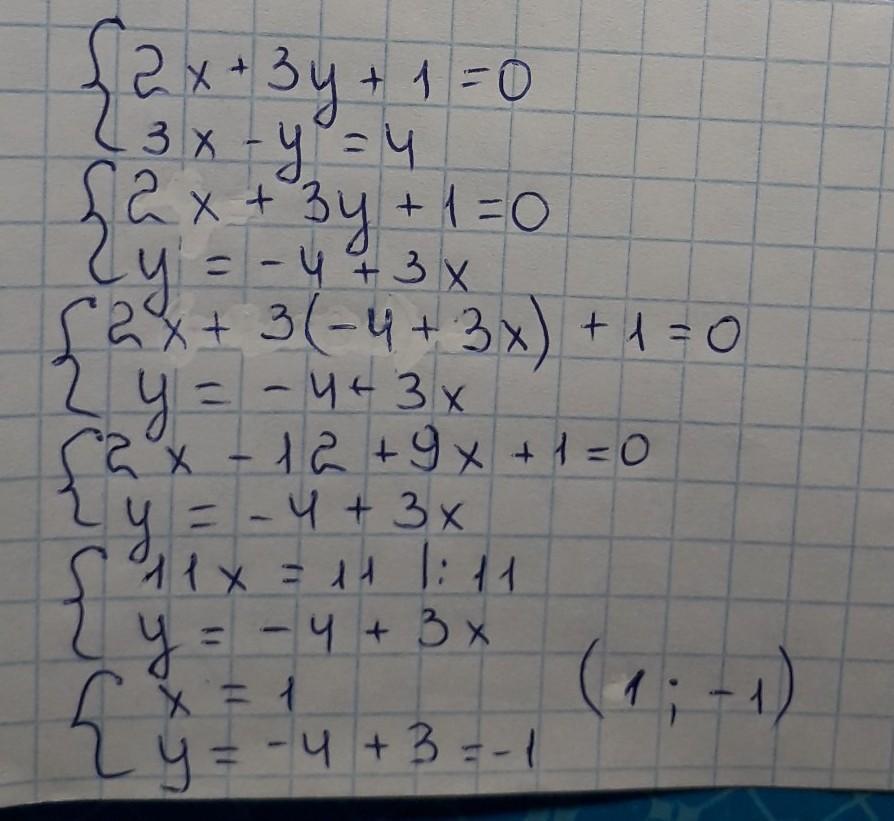 2x + 3y + 1 = 0
3x - y = 4
2x + 3y + 1 = 0
y = -4 + 3x
2x + 3(-4 + 3x) + 1 = 0
y = -4 + 3x
2x - 12 + 9x + 1 = 0
y = -4 + 3x
11x = 11 |: 11
y = -4 + 3x
x = 1
y = -4 + 3 = -1
(1; -1)